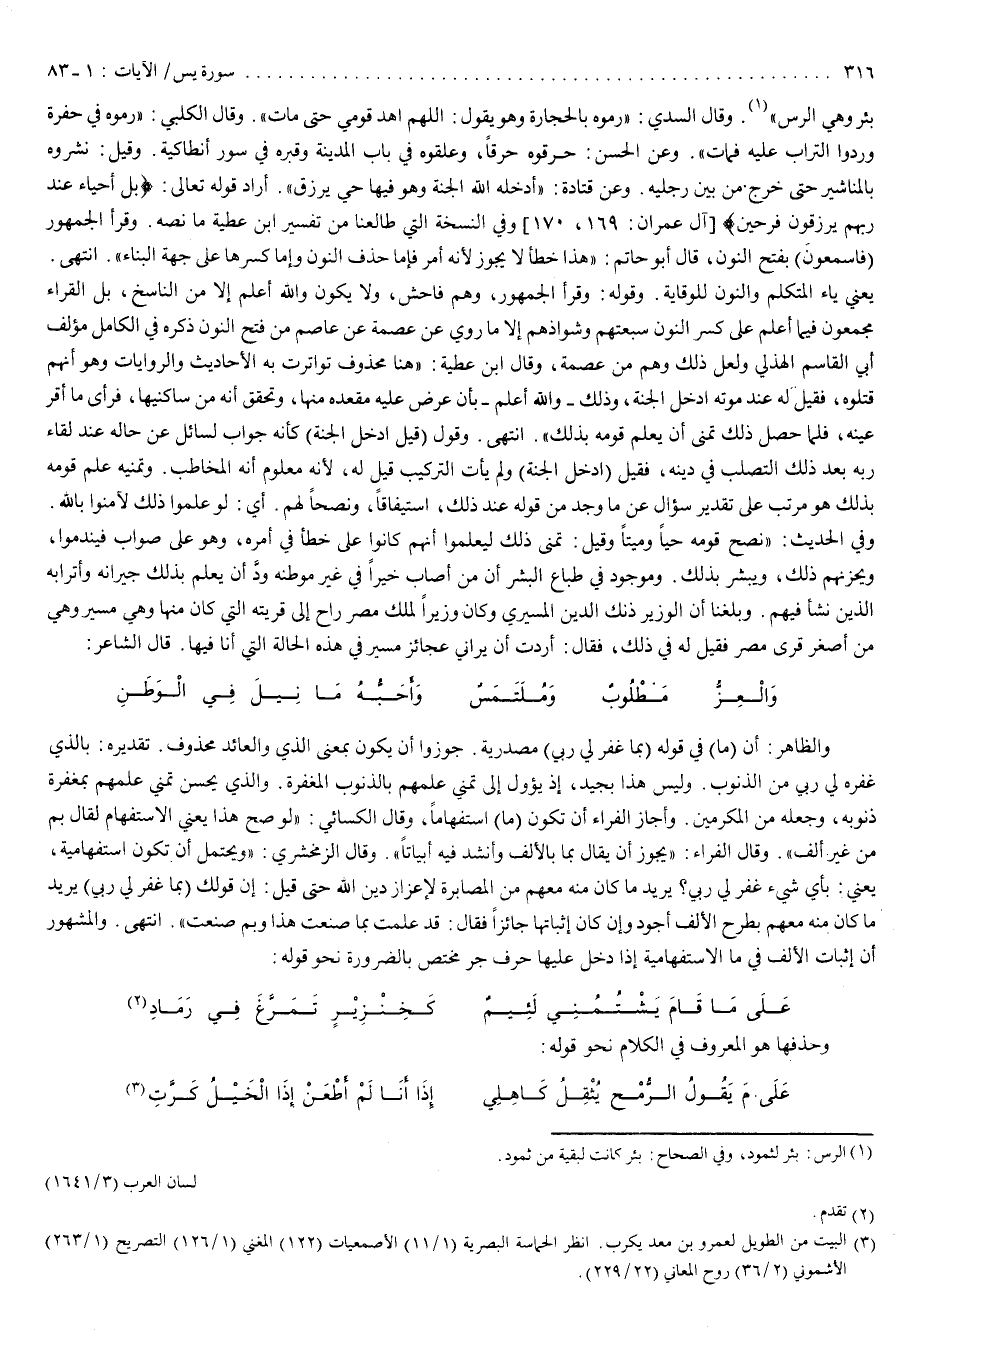 ٣١٦ ............................................................ سورة يس/ الآيات : ١ - ٨٣
بئر وهي الرس»(١). وقال السدي : «رموه بالحجارة وهو يقول : اللهم اهد قومي حتى مات». وقال الكلبي : «رموه في حفرة
وردوا التراب عليه فمات». وعن الحسن : حرقوه حرقاً، وعلقوه في باب المدينة وقبره في سور أنطاكية. وقيل : نشروه
بالمناشير حتى خرج من بين رجليه. وعن قتادة : «أدخله الله الجنة وهو فيها حي يرزق». أراد قوله تعالى : ﴿بل أحياء عند
ربهم يرزقون فرحين﴾ [آل عمران : ١٦٩، ١٧٠] وفي النسخة التي طالعنا من تفسير ابن عطية ما نصه. وقرأ الجمهور
(فاسمعونَ) بفتح النون، قال أبو حاتم : «هذا خطأ لا يجوز لأنه أمر فإما حذف النون وإما كسرها على جهة البناء». انتهى.
يعني ياء المتكلم والنون للوقاية. وقوله : وقرأ الجمهور، وهم فاحش، ولا يكون والله أعلم إلا من الناسخ، بل القراء
مجمعون فيما أعلم على كسر النون سبعتهم وشواذهم إلا ما روي عن عصمة عن عاصم من فتح النون ذكره في الكامل مؤلف
أبي القاسم الهذلي ولعل ذلك وهم من عصمة، وقال ابن عطية : «هنا محذوف تواترت به الأحاديث والروايات وهو أنهم
قتلوه، فقيل له عند موته ادخل الجنة، وذلك - والله أعلم - بأن عرض عليه مقعده منها، وتحقق أنه من ساكنيها، فرأى ما أقر
عينه، فلما حصل ذلك تمنى أن يعلم قومه بذلك». انتهى. وقول (قيل ادخل الجنة) كأنه جواب لسائل عن حاله عند لقاء
ربه بعد ذلك التصلب في دينه، فقيل (ادخل الجنة) ولم يأت التركيب قيل له، لأنه معلوم أنه المخاطب. وتمنيه علم قومه
بذلك هو مرتب على تقدير سؤال عن ما وجد من قوله عند ذلك، استيفاقاً، ونصحاً لهم. أي : لو علموا ذلك لآمنوا بالله.
وفي الحديث : «نصح قومه حياً وميتاً وقيل : تمنى ذلك ليعلموا أنهم كانوا على خطأ في أمره، وهو على صواب فيندموا،
ويحزنهم ذلك، ويبشر بذلك. وموجود في طباع البشر أن من أصاب خيراً في غير موطنه ودَّ أن يعلم بذلك جيرانه وأترابه
الذين نشأ فيهم. وبلغنا أن الوزير ذنك الدين المسيري وكان وزيراً لملك مصر راح إلى قريته التي كان منها وهي مسير وهي
من أصغر قرى مصر فقيل له في ذلك، فقال : أردت أن يراني عجائز مسير في هذه الحالة التي أنا فيها. قال الشاعر :
وَالْعِزُّ مَطْلُوبٌ وَمُلْتَمَسٌ وَأَحَبُّهُ مَا نِيلَ فِي الْوَطَنِ
والظاهر : أن (ما) في قوله (بما غفر لي ربي) مصدرية. جوزوا أن يكون بمعنى الذي والعائد محذوف. تقديره : بالذي
غفره لي ربي من الذنوب. وليس هذا بجيد، إذ يؤول إلى تمني علمهم بالذنوب المغفرة. والذي يحسن تمني علمهم بمغفرة
ذنوبه، وجعله من المكرمين. وأجاز الفراء أن تكون (ما) استفهاماً، وقال الكسائي : «لو صح هذا يعني الاستفهام لقال بم
من غير ألف». وقال الفراء : «يجوز أن يقال بما بالألف وأنشد فيه أبياتاً». وقال الزمخشري : «ويحتمل أن تكون استفهامية،
يعني : بأي شيء غفر لي ربي؟ يريد ما كان منه معهم من المصابرة لإعزاز دين الله حتى قيل : إن قولك (بما غفر لي ربي) يريد
ما كان منه معهم بطرح الألف أجود وإن كان إثباتها جائزاً فقال : قد علمت بما صنعت هذا وبم صنعت». انتهى. والمشهور
أن إثبات الألف في ما الاستفهامية إذا دخل عليها حرف جر مختص بالضرورة نحو قوله :
عَلَى مَا قَامَ يَشْتُمُنِي لَئِيمٌ كَخِنْزِيْرٍ تَمَرَّغَ فِي رَمَادِ(٢)
وحذفها هو المعروف في الكلام نحو قوله :
عَلَى مَ يَقُولُ الرُّمْحَ يُثْقِلُ كَاهِلِي إِذَا أَنَا لَمْ أَطْعَنْ إِذَا الْخَيْلُ كَرَّتِ(٣)
(١) الرس : بئر لثمود، وفي الصحاح : بئر كانت لبقية من ثمود.
لسان العرب (١٦٤١/٣)
(٢) تقدم.
(٣) البيت من الطويل لعمرو بن معد يكرب. انظر الحماسة البصرية (١١/١) الأصمعيات (١٢٢) المغني (١٢٦/١) التصريح (٢٦٣/١)
الأشموني (٣٦/٢) روح المعاني (٢٢٩/٢٢).